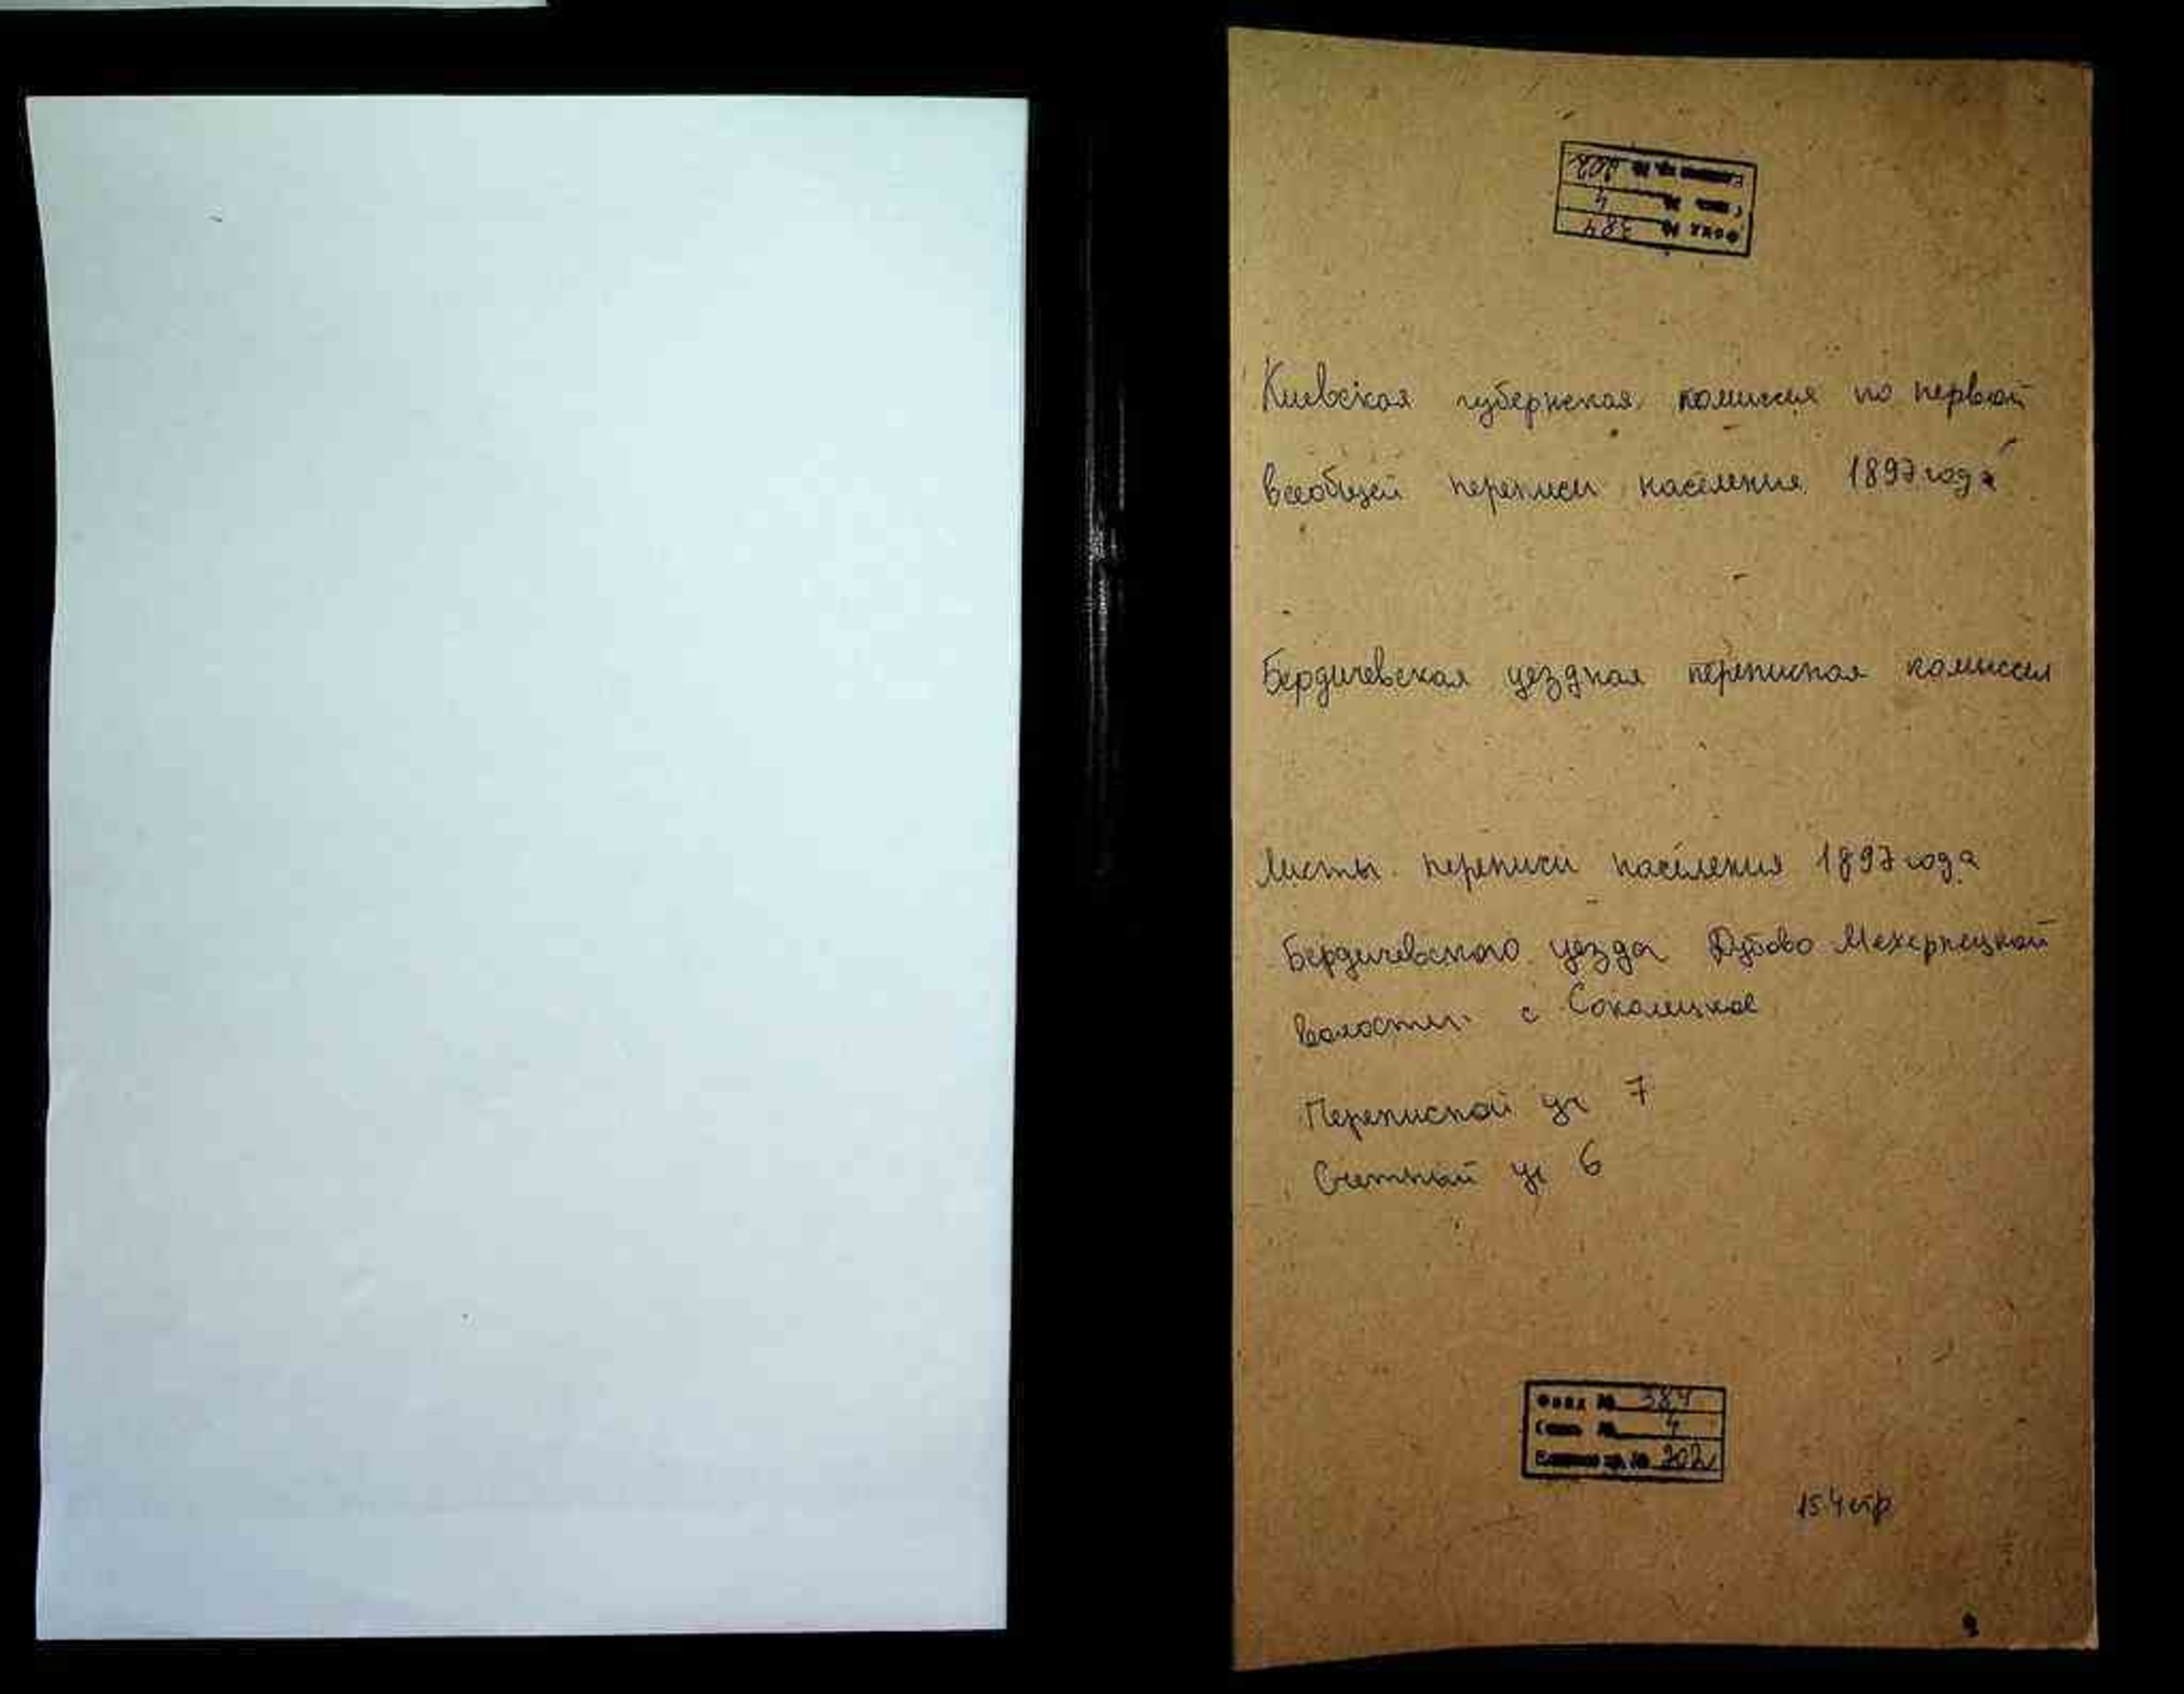 Фонд № 384
Опись № 4
Единица хр. № 202
Киевская губернская комиссия по первой
всеобщей переписи населения 1897 года
Бердичевская уездная переписная комиссия
Листы переписи населения 1897 года
Бердичевского уезда Дубово Мехеренецкой
волости с
Переписной уч 7
Счетный уч 6
Фонд № 384
Опись № 4
Единица хр. № 202
154 стр